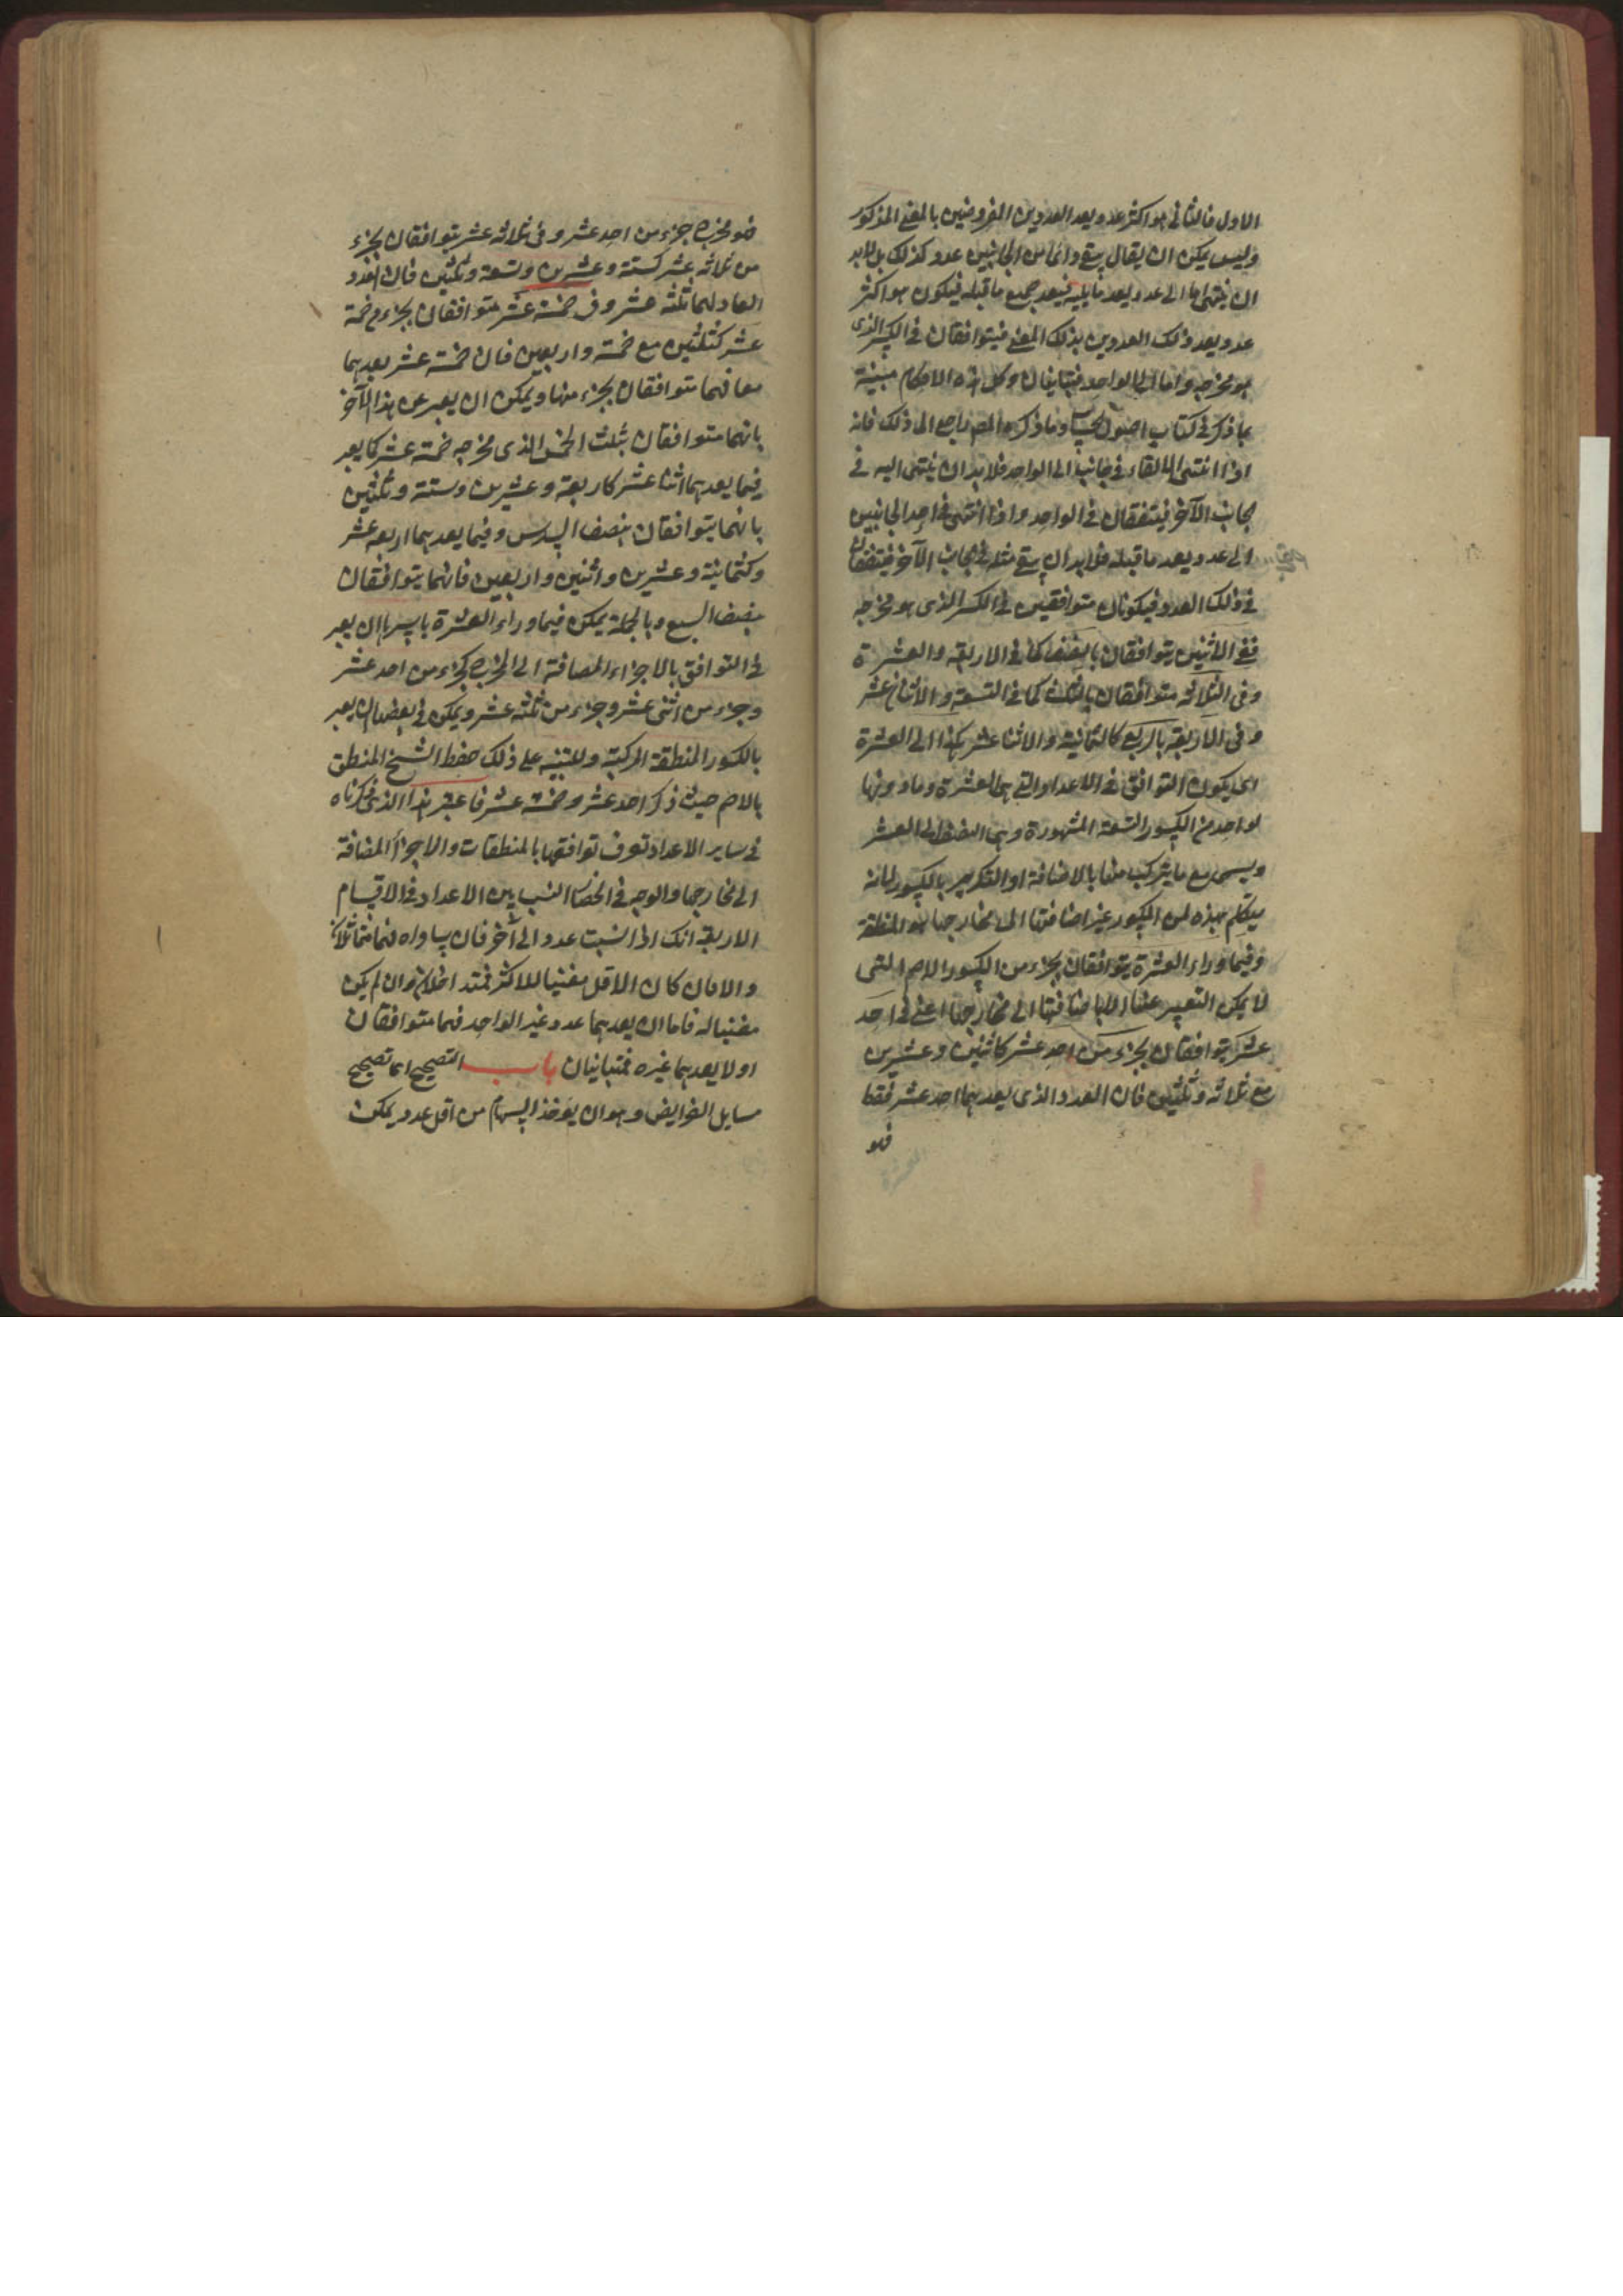 الاول فالثانى هو اكثر عدد يعد العددين المفروضين بالمعنى المذكور
وليس يمكن ان يقال يبقى دائما من الجانبين عدد كذلك بل لابد
ان ينتهى اما الى عدد يعد ما يليه فيعد جميع ما قبله فيكون هو اكثر
عدد يعد ذلك العددين بذلك المعنى فيتوافقان فى الكسر الذى
هو مخرجه واما الى الواحد فيتباينان وكل هذه الاحكام مبينة
بما ذكر فى كتاب اصول الحساب وما ذكره المص راجع الى ذلك فانه
اذا انتهى الالقاء فى جانب الى الواحد فلا بد ان ينتهى اليه فى
الجانب الآخر فيتفقان فى الواحد واذا انتهى فى احد الجانبين
الى عدد يعد ما قبله فلا بد ان يبقى مثله فى الجانب الآخر فيتفقان
فى ذلك العدد فيكونان متوافقين فى الكسر الذى هو مخرجه
ففى الاثنين يتوافقان بالنصف كما فى الاربعة والعشرة
وفى الثلاثة متوافقان بالثلث كما فى التسعة والاثناعشر
وفى الاربعة بالربع كالثمانية والاثنا عشر هكذا الى العشرة
اى يكون التوافق فى الاعداد التى هى العشرة وما دونها
لواحد من الكسور التسعة المشهورة وهى النصف الى العشر
ويسمى مع ما يتركب منها بالاضافة او التكرير بالكسور لانه
يتكلم بهذه من الكسور غير اضافتها الى مخارجها هو المنطقة
وفيما وراء العشرة يتوافقان بجزء من الكسور الاصم التى
لا يمكن التعبير عنها الا باضافتها الى مخارجها اعنى فى احد
عشر يتوافقان بجزء من احد عشر كاثنين وعشرين
مع ثلاثة وثلثين فان العدد الذى يعدهما احد عشر فقط
فهو
فهو مخرج جزء من احد عشر وفى ثلاثة عشر يتوافقان بجزء
من ثلاثة عشر كستة وعشرين وتسعة وثلثين فان العدد
العاد لهما ثلثة عشر وفى خمسة عشر متوافقان بجزء من خمسة
عشر كثلثين مع خمسة واربعين فان خمسة عشر يعدهما
معا فهما متوافقان بجزء منها ويمكن ان يعبر عن هذا الآخر
بانهما متوافقان بثلث الخمس الذى مخرجه خمسة عشر كما يعبر
فيما يعدهما اثنا عشر كاربعة وعشرين وستة وثلثين
بانهما يتوافقان بنصف السدس وفيما يعدهما اربعة عشر
وكثمانية وعشرين واثنين واربعين فانهما يتوافقان
بنصف السبع وبالجملة يمكن فيما وراء العشرة باسرها ان يعبر
فى التوافق بالاجزاء المضافة الى المخرج كجزء من احد عشر
وجزء من اثنى عشر وجزء من ثلثة عشر ويمكن فى بعضها ان يعبر
بالكسور المنطقة المركبة وللتنبيه على ذلك خلط الشيخ المنطق
بالاصم حيث ذكر احد عشر وخمسة عشر فاعتبر هذا الذى ذكرناه
فى ساير الاعداد تعرف توافقها بالمنطقات والاجزاء المضافة
الى مخارجها والوجه فى انحصار النسب بين الاعداد فى الاقسام
الاربعة انك اذا نسبت عدد الى آخر فان يساواه فهما متماثلان
والا فان كان الاقل مفنيا للاكثر فمتداخلان وان لم يكن
مفنيا له فاما ان يعدهما عدد غير الواحد فهما متوافقان
اولا يعدهما غيره فمتباينان باب التصحيح اى تصحيح
مسايل الفرايض وهو ان يوخذ السهام من اقل عدد يمكن